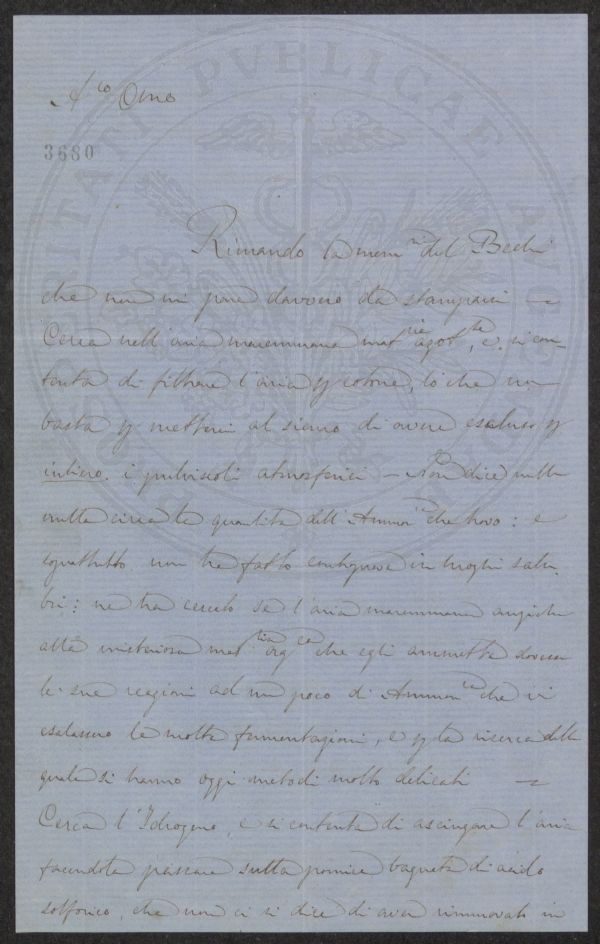 A.co Omo
3680
Rimando la mem.ria del Bechi
che non mi pare davvero da stamparsi —
Cerca nell'aria maremmana mat.ria azot.ta, e si con-
tenta di filtrare l'aria p cotone, lo che non
basta p mettersi al sicuro di avere escluso p
intiero i pulviscoli atmosferici — Non dice nulla
nulla circa le quantità dell'Ammon.ca che trovò: e
soprattutto non ha fatto contoprove in luoghi salu-
bri: nè ha cercato se l'aria maremmana anzichè
alla misteriosa mat.ria org.ca che egli ammette dovesse
le sue reazioni ad un poco di Ammon.ca che vi
esalassero le molte fermentazioni, e p la ricerca della
quale si hanno oggi metodi molto delicati —
Cerca l'Idrogeno, e si contenta di asciugare l'aria
facendola passare sulla pomice bagnata di acido
solforico, che non ci si dice di aver rinnovato in
PVBLICAE